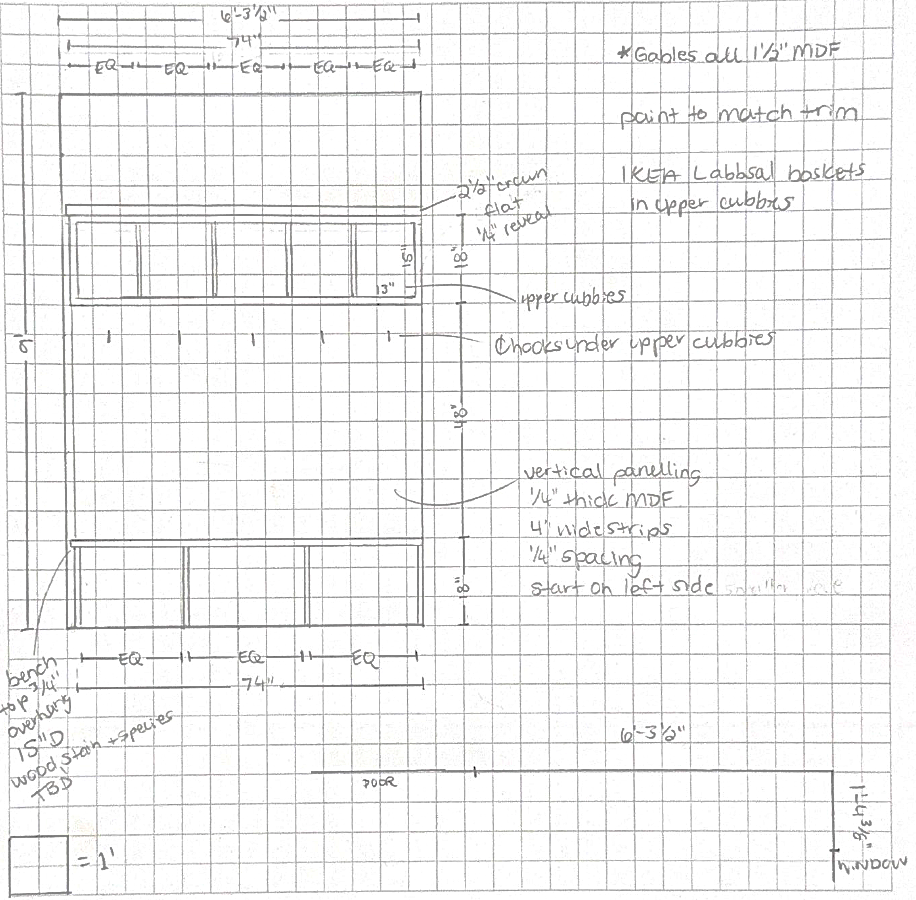 6'-3½"
74"
EQ EQ EQ EQ EQ
*Gables all 1½" MDF
paint to match trim
IKEA Labbsal baskets
in upper cubbies
2½" crown
flat
¼" reveal
15"
18"
13"
upper cubbies
hooks under upper cubbies
48"
vertical panelling
¼" thick MDF
4" wide strips
¼" spacing
start on left side
18"
EQ EQ EQ
74"
bench
top ¾"
overhang
15"D
wood stain + species
TBD
6'-3½"
DOOR
1'-4⅜"
WINDOW
= 1'